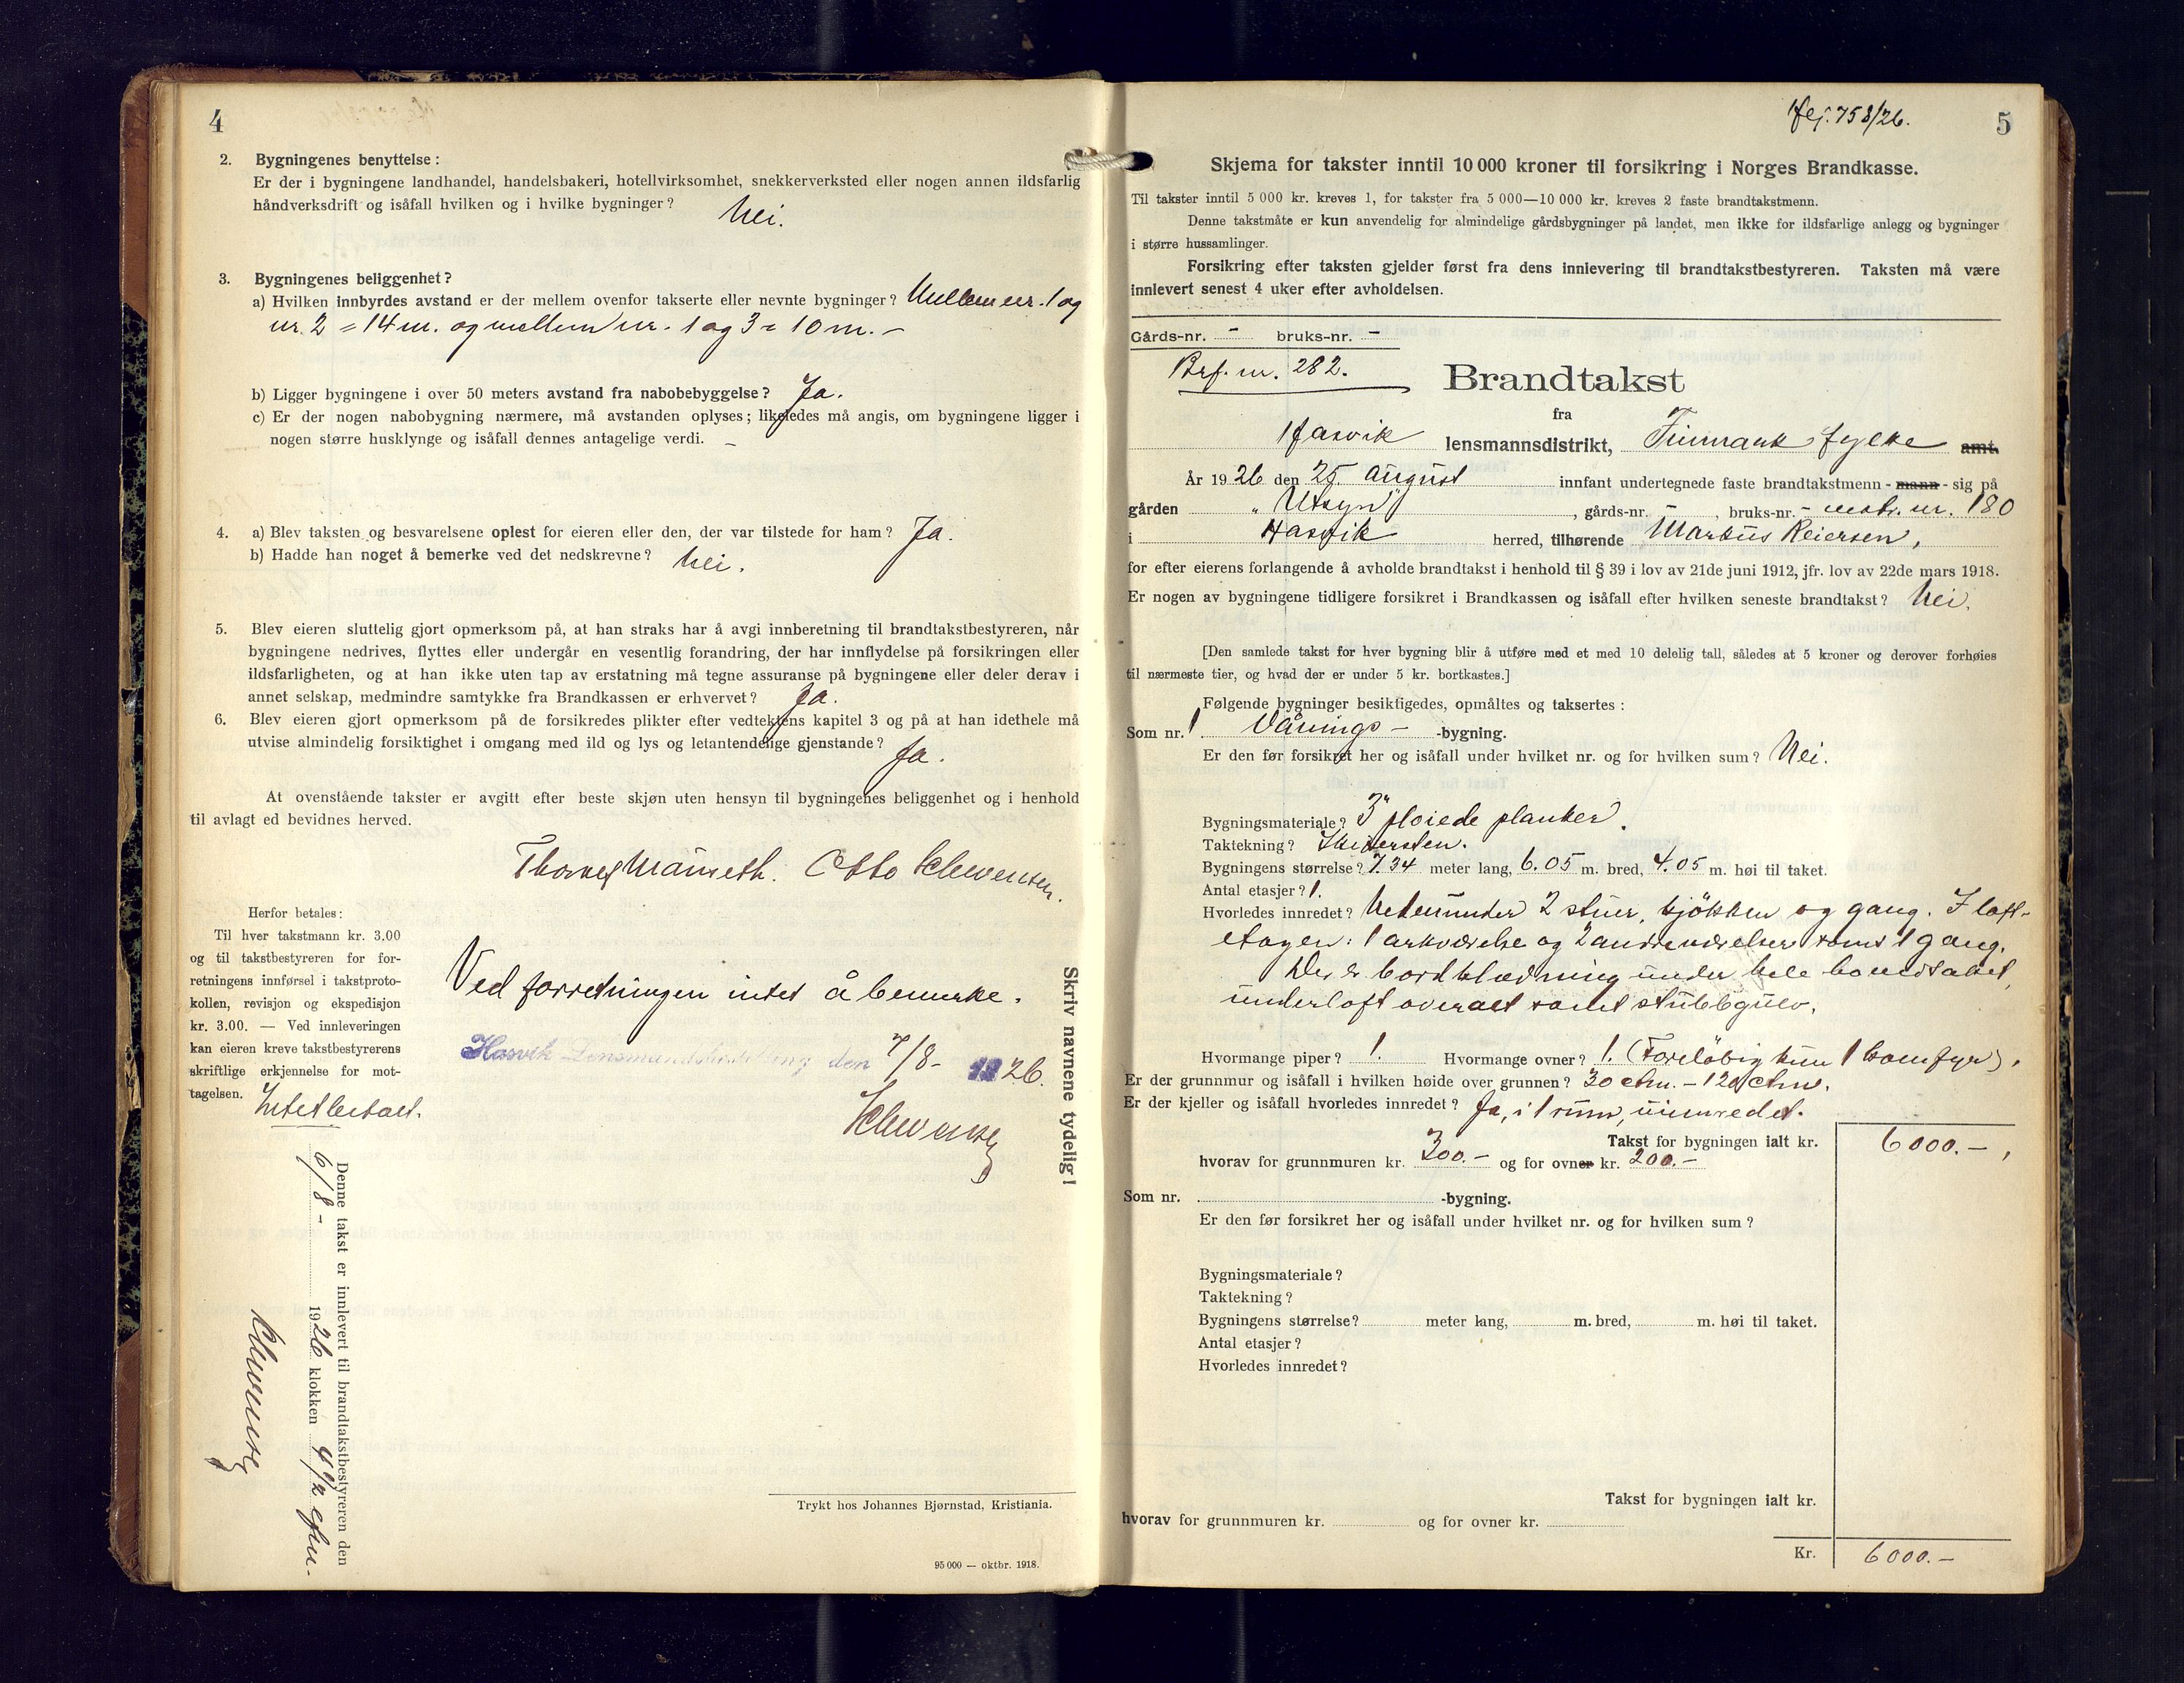 4
2. Bygningenes benyttelse:
Er der i bygningene landhandel, handelsbakeri, hotellvirksomhet, snekkerverksted eller nogen annen ildsfarlig
håndverksdrift og isåfall hvilken og i hvilke bygninger? Nei.
3. Bygningenes beliggenhet?
a) Hvilken innbyrdes avstand er der mellem ovenfor takserte eller nevnte bygninger? Mellem nr. 1 og
nr. 2 = 14 m. og mellem nr. 1 og 3 = 10 m. –
b) Ligger bygningene i over 50 meters avstand fra nabobebyggelse? Ja.
c) Er der nogen nabobygning nærmere, må avstanden oplyses; likeledes må angis, om bygningene ligger i
nogen større husklynge og isåfall dennes antagelige verdi. –
4. a) Blev taksten og besvarelsene oplest for eieren eller den, der var tilstede for ham? Ja.
b) Hadde han noget å bemerke ved det nedskrevne? Nei.
5. Blev eieren sluttelig gjort opmerksom på, at han straks har å avgi innberetning til brandtakstbestyreren, når
bygningene nedrives, flyttes eller undergår en vesentlig forandring, der har innflydelse på forsikringen eller
ildsfarligheten, og at han ikke uten tap av erstatning må tegne assuranse på bygningene eller deler derav i
annet selskap, medmindre samtykke fra Brandkassen er erhvervet? Ja.
6. Blev eieren gjort opmerksom på de forsikredes plikter efter vedtektens kapitel 3 og på at han idethele må
utvise almindelig forsiktighet i omgang med ild og lys og letantendelige gjenstande? Ja.
At ovenstående takster er avgitt efter beste skjøn uten hensyn til bygningenes beliggenhet og i henhold
til avlagt ed bevidnes herved.
Otto Clemensen.
Herfor betales:
Til hver takstmann kr. 3.00
og til takstbestyreren for for-
retningens innførsel i takstproto-
kollen, revisjon og ekspedisjon
kr. 3.00. — Ved innleveringen
kan eieren kreve takstbestyrerens
skriftlige erkjennelse for mot-
tagelsen. Intet betalt.
Ved forretningen intet å bemerke.
Hasvik Lensmannsbestilling den 7/8- 1926.
Clemensen
Skriv navnene tydelig!
Denne takst er innlevert til brandtakstbestyreren den
6/8 - 1926 klokken 4 1/2 efm.
Clemensen
Trykt hos Johannes Bjørnstad, Kristiania.
95 000 — oktbr. 1918.
758/26.
5
Skjema for takster inntil 10 000 kroner til forsikring i Norges Brandkasse.
Til takster inntil 5 000 kr. kreves 1, for takster fra 5 000—10 000 kr. kreves 2 faste brandtakstmenn.
Denne takstmåte er kun anvendelig for almindelige gårdsbygninger på landet, men ikke for ildsfarlige anlegg og bygninger
i større hussamlinger.
Forsikring efter taksten gjelder først fra dens innlevering til brandtakstbestyreren. Taksten må være
innlevert senest 4 uker efter avholdelsen.
Gårds-nr. – bruks-nr. –
Brf. nr. 282.
Brandtakst
fra
Hasvik lensmannsdistrikt, Finmark fylke amt.
År 1926 den 25. august innfant undertegnede faste brandtakstmenn - mann - sig på
gården „Utsyn", gårds-nr. –, bruks-nr. – matr. nr. 180
i Hasvik herred, tilhørende Markus Reiersen,
for efter eierens forlangende å avholde brandtakst i henhold til § 39 i lov av 21de juni 1912, jfr. lov av 22de mars 1918.
Er nogen av bygningene tidligere forsikret i Brandkassen og isåfall efter hvilken seneste brandtakst? Nei.
[Den samlede takst for hver bygning blir å utføre med et med 10 delelig tall, således at 5 kroner og derover forhøies
til nærmeste tier, og hvad der er under 5 kr. bortkastes.]
Følgende bygninger besiktigedes, opmåltes og taksertes:
Som nr. 1 Vånings– -bygning.
Er den før forsikret her og isåfall under hvilket nr. og for hvilken sum? Nei.
Bygningsmateriale? 3" pløiede planker.
Taktekning? Skifersten.
Bygningens størrelse? 7.34 meter lang, 6.05 m. bred, 4.05 m. høi til taket.
Antal etasjer? 1.
Hvorledes innredet? Nedenunder 2 stuer, kjøkken og gang. I loft-
etagen: 1 arkværelse og 2 andre værelser samt 1 gang.
Der er bordklædning under hele bordtaket,
underloft overalt samt stubbgulv.
Hvormange piper? 1. Hvormange ovner? 1. (Foreløbig kun 1 komfyr).
Er der grunnmur og isåfall i hvilken høide over grunnen? 30 ctm. – 120 ctm.
Er der kjeller og isåfall hvorledes innredet? Ja, i 1 rum, uinnredet.
Takst for bygningen ialt kr. 6000.–
hvorav for grunnmuren kr. 300.– og for ovner kr. 200.–
Som nr. -bygning.
Er den før forsikret her og isåfall under hvilket nr. og for hvilken sum?
Bygningsmateriale?
Taktekning?
Bygningens størrelse? meter lang, m. bred, m. høi til taket.
Antal etasjer?
Hvorledes innredet?
Takst for bygningen ialt kr.
hvorav for grunnmuren kr. og for ovner kr.
Kr. 6000.–